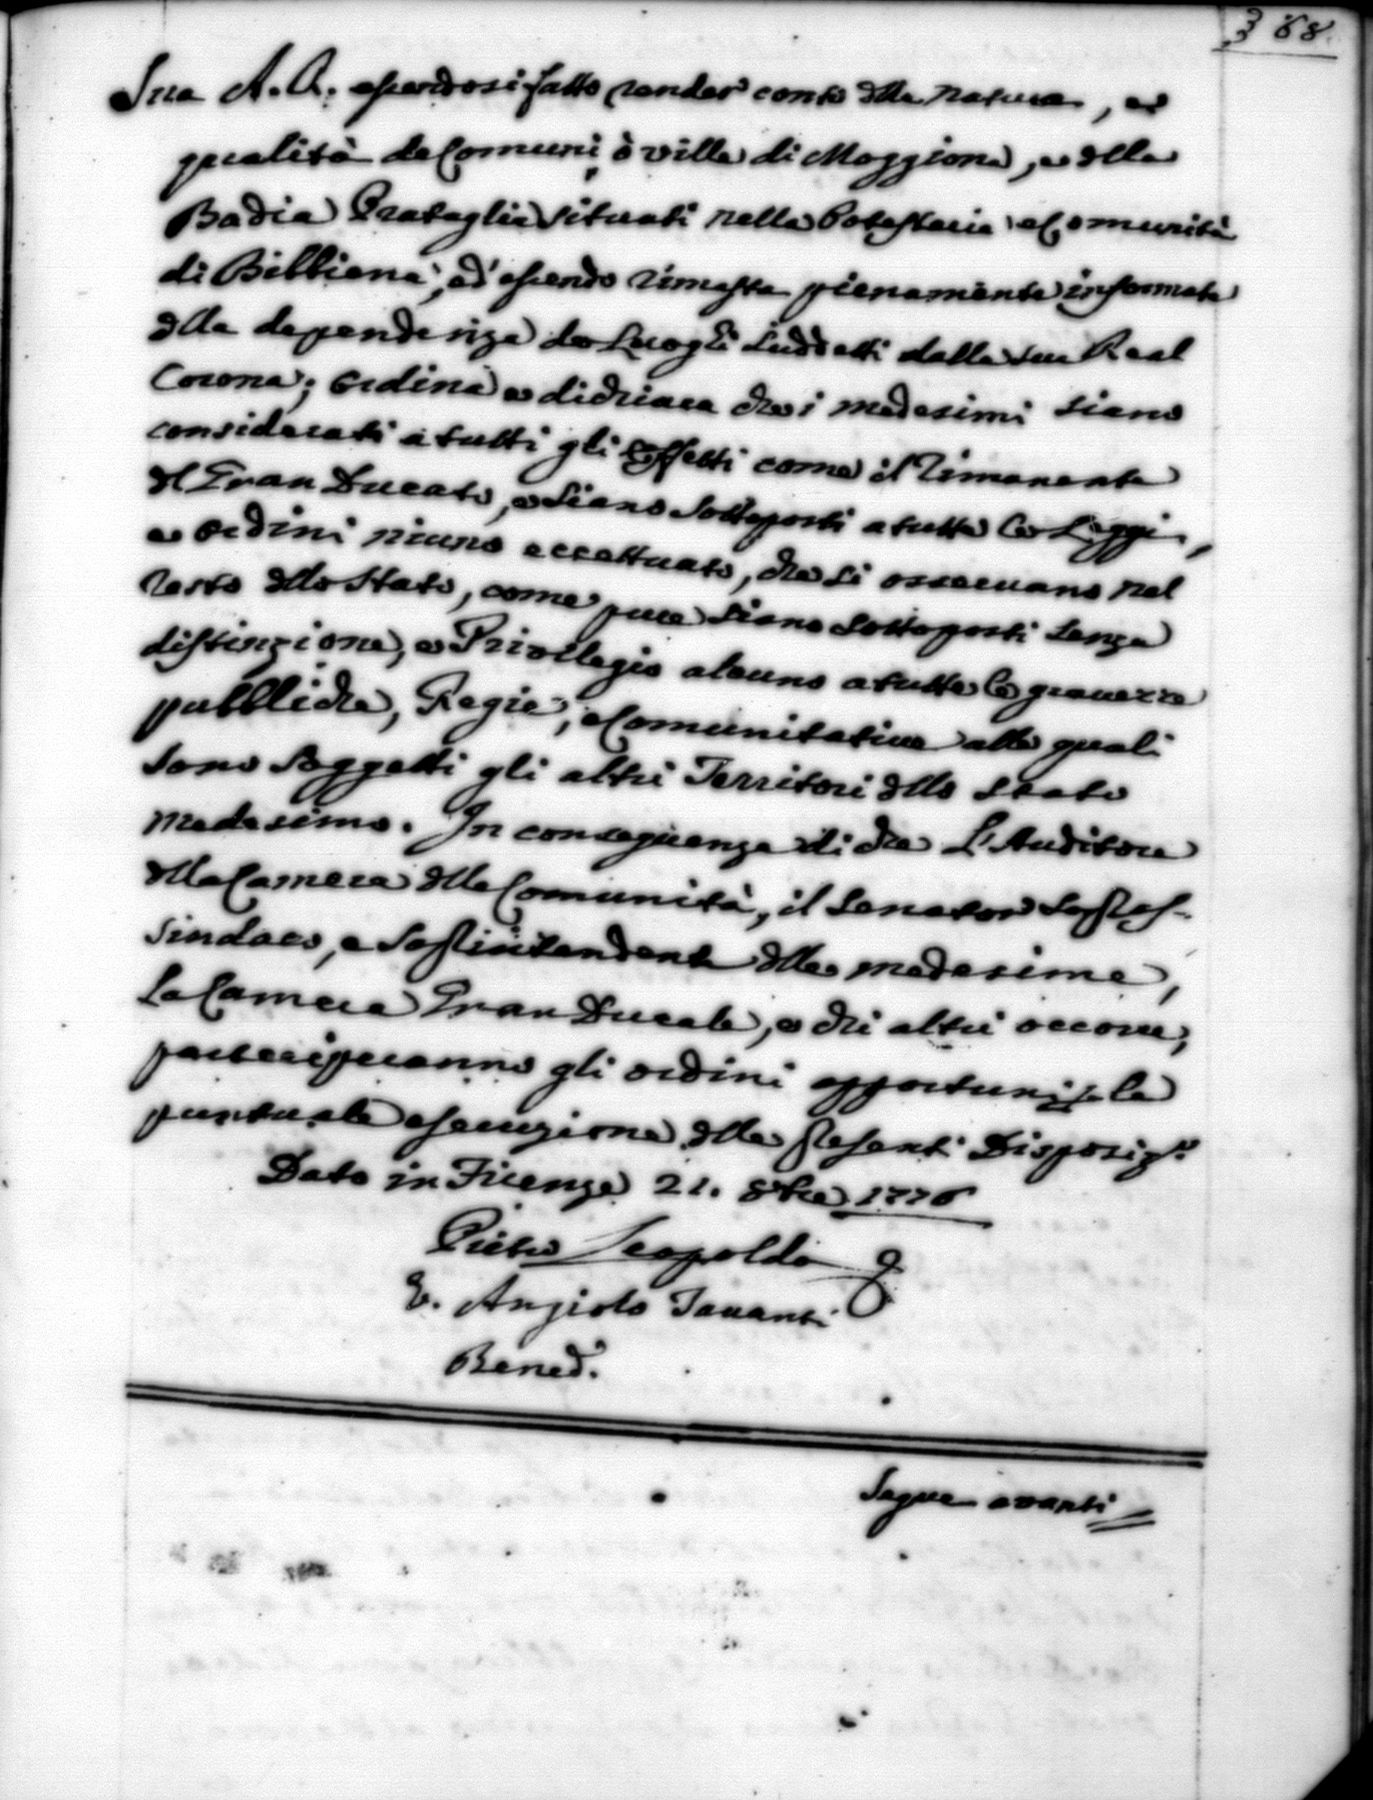 368.
Sua A. R. essendosi fatto render conto della natura, e
qualità de Comuni, ò ville di Moggiona, e della
Badia Prataglia situati nella Potesteria e Comunità
di Bibbiena, ed' essendo rimasta pienamente informata
della dependenza de Luoghi suddetti dalla sua Real
Corona; Ordina e dichiara che i medesimi siano
considerati a tutti gli effetti come il rimanente
del Gran Ducato, e siano sottoposti a tutte le Leggi,
e ordini niuno eccettuato, che si osservano nel
resto dello Stato, come pure siano sottoposti senza
distinzione, e Privilegio alcuno a tutte le gravezze
pubbliche, Regie, e Comunitative alle quali
sono soggetti gli altri Territori dello Stato
medesimo. In conseguenza di che L'Auditore
della Camera delle Comunità, il Senator
Sindaco, e Soprintendente delle medesime,
La Camera Gran Ducale, e chi altri occorre,
parteciperanno gli ordini opportuni p. la
puntuale esecuzione delle presenti Disposiz.ni
Dato in Firenze 21. 8bre 1776
Pietro Leopoldo
V. Angiolo Tavanti
Bened.
Segue avanti